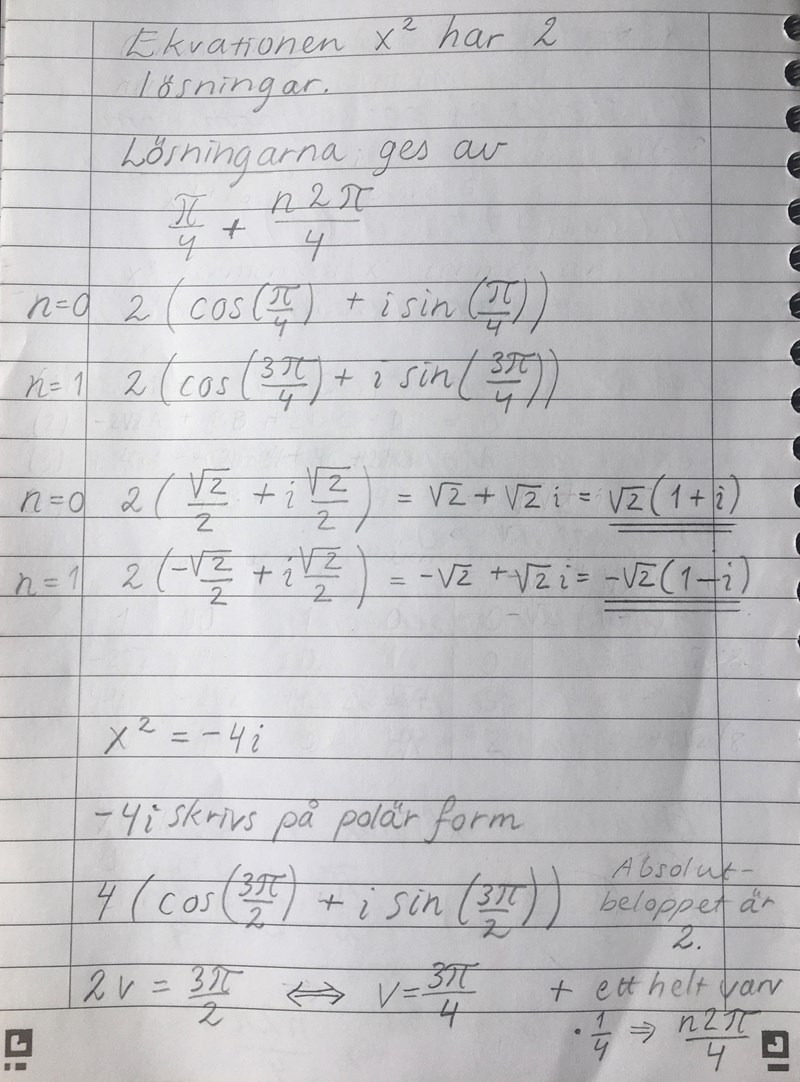 Ekvationen x² har 2
lösningar.
Lösningarna ges av
π/4 + n2π/4
n=0 2(cos(π/4) + i sin(π/4))
n=1 2(cos(3π/4) + i sin(3π/4))
n=0 2(√2/2 + i√2/2) = √2 + √2 i = √2(1+i)
n=1 2(-√2/2 + i√2/2) = -√2 + √2 i = -√2(1-i)
x² = -4i
-4i skrivs på polär form
4(cos(3π/2) + i sin(3π/2)) Absolut-
beloppet är
2.
2v = 3π/2 ⇔ v = 3π/4 + ett helt varv
· 1/4 ⇒ n2π/4